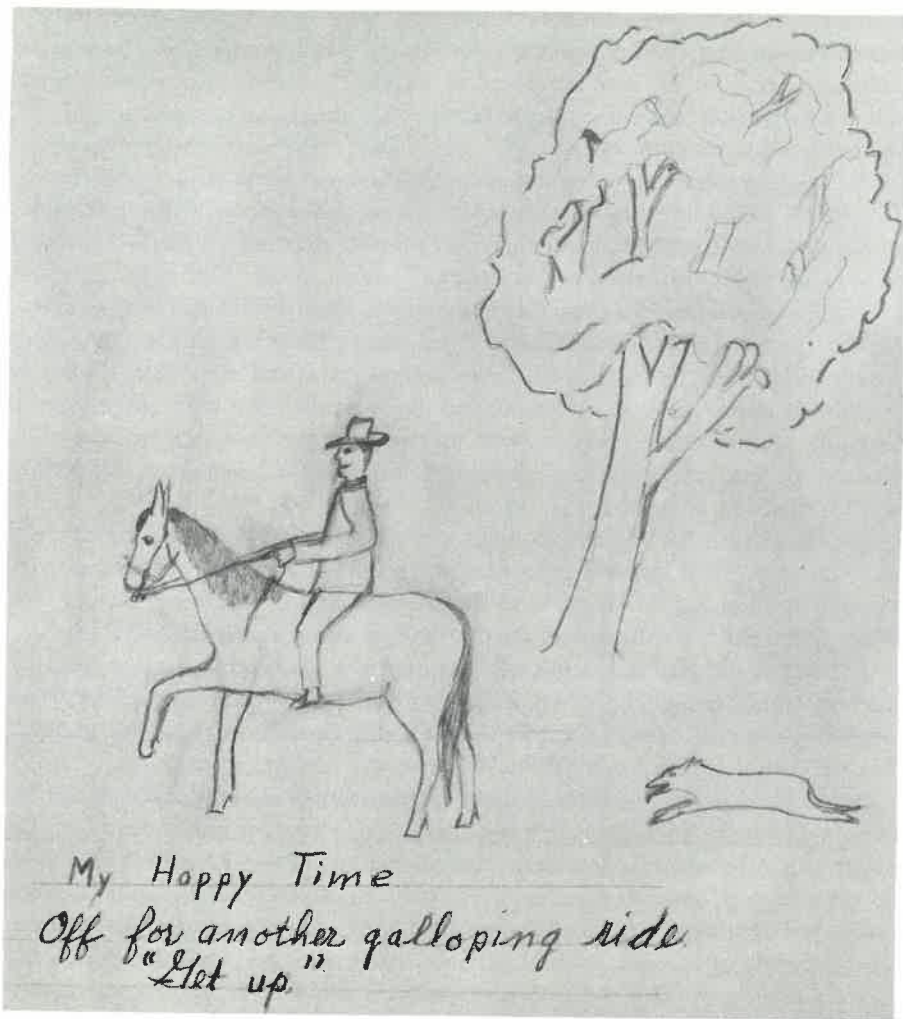 My Happy Time
Off for another galloping ride
"Get up."